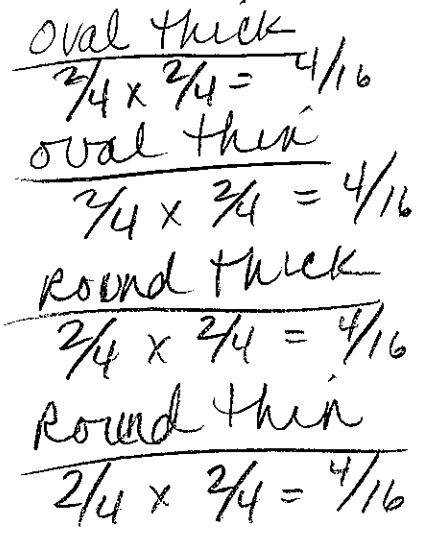 oval thick
2/4 x 2/4 = 4/16
oval thin
2/4 x 2/4 = 4/16
Round thick
2/4 x 2/4 = 4/16
Round thin
2/4 x 2/4 = 4/16